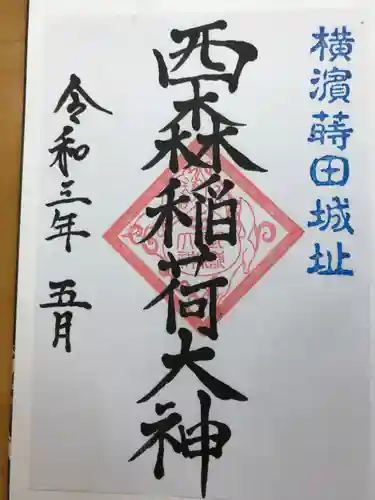 横濱蒔田城址
西森稲荷大神
令和三年 五月